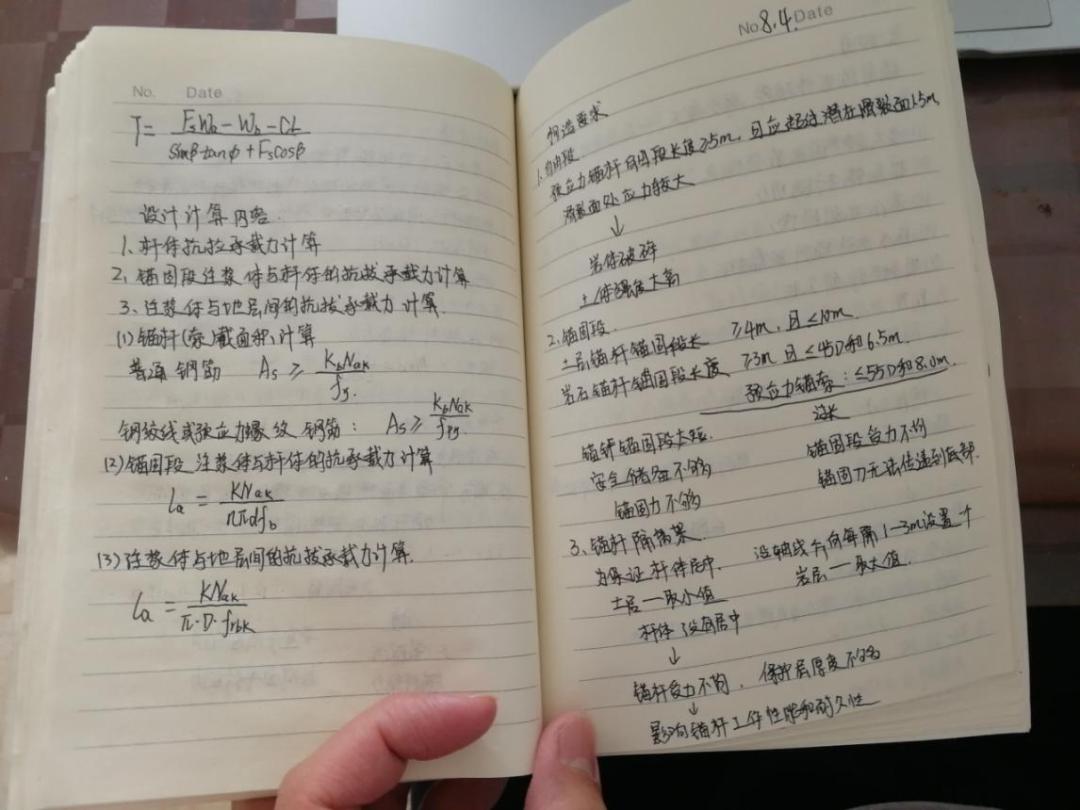 No. Date
T= FsWa-Wb-CL / sinβtanφ+Fscosβ
设计计算内容.
1、杆体抗拉承载力计算
2、锚固段注浆体与杆体的抗拔承载力计算
3、注浆体与地层间的抗拔承载力计算.
(1)锚杆(索)截面积计算
普通钢筋 As ≥ KbNak / fy.
钢绞线或预应力螺纹钢筋: As ≥ KbNak / fpy
(2)锚固段注浆体与杆体的抗承载力计算
la = KNak / nπdfb
(3)注浆体与地层间的抗拔承载力计算.
la = KNak / π·D·frbk
No 8.4. Date
构造要求
1、自由段
预应力锚杆自由段长度≥5m, 且应超过潜在滑裂面1.5m
滑裂面处应力较大
↓
岩体破碎
土体强度太高
2、锚固段.
土层锚杆锚固段长 ≥4m, 且≤10m.
岩石锚杆锚固段长度 ≥3m 且≤45D和6.5m.
预应力锚索: ≤55D和8.0m.
过长
锚杆锚固段太短. 锚固段受力不均
安全储备不够 锚固力无法传递到底部.
锚固力不够
3、锚杆隔离架.
为保证杆体居中. 沿轴线方向每隔1-3m设置一个
土层一取小值 岩层一取大值.
杆体没有居中
↓
锚杆受力不均, 保护层厚度不够
↓
影响锚杆工作性能和耐久性